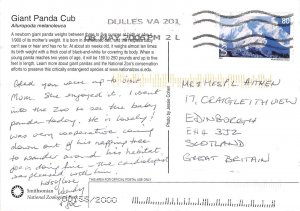 Giant Panda Cub
Ailuropoda melanoleuca
DULLES VA 201
PM 2 L
80
A newborn giant panda weighs between three to five ounces at birth or about
1/900 of its mother's weight. It is born blind, with thin white fur and initially
can't see or hear and has no fur. At about six weeks old, it weighs almost ten times
its birth weight and with a thick coat of black-and-white fur covering its body. When a
young panda reaches two years of age, it will be 150 to 290 pounds and up to five feet
in length. Learn more about giant pandas and the National Zoo's conservation
efforts to preserve this critically endangered species at www.nationalzoo.si.edu
Glad you were up to visit
Mom. She enjoyed it. I went
into the Zoo to see the baby
panda today. He is lovely!
was very cooperative coming
down out of his napping tree
to wander around his habitat.
is doing fine - the cardiologist
was pleased with him!
Love
Wendy
Mr & Mrs P. L. AITKEN
17, CRAIGLEITH VIEW
EDINBURGH
EH4 3JZ
SCOTLAND
GREAT BRITAIN
Smithsonian
National Zoological
AREA FOR OFFICIAL POSTAL USE ONLY